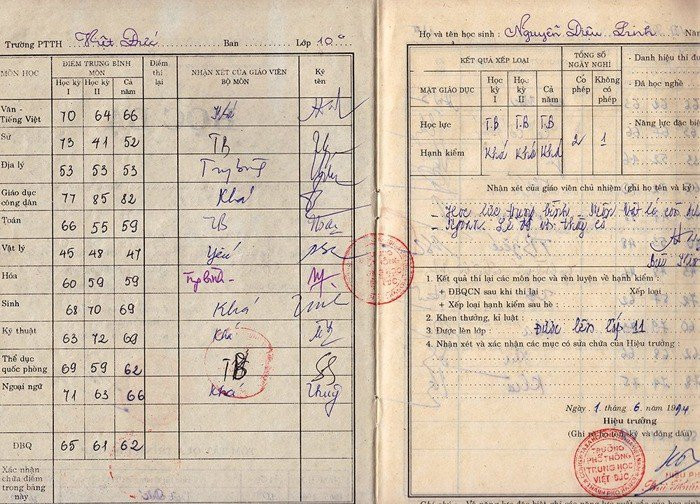 Trường PTTH Việt Đức Ban Lớp 10
MÔN HỌC ĐIỂM TRUNG BÌNH MÔN Điểm thi lại NHẬN XÉT CỦA GIÁO VIÊN BỘ MÔN Ký tên
Học kỳ I Học kỳ II Cả năm
Văn - Tiếng Việt 70 64 66 Khá
Sử 73 41 52 TB
Địa lý 53 53 53 Trg bình
Giáo dục công dân 77 85 82 Khá
Toán 66 55 59 TB
Vật lý 45 48 47 Yếu
Hóa 60 59 59 Trg bình
Sinh 68 70 69 Khá
Kỹ thuật 63 72 69 Khá
Thể dục quốc phòng 69 59 62 TB
Ngoại ngữ 71 63 66 Khá Thuỷ
ĐBQ 65 61 62
Xác nhận
chữa điểm
trong bảng
này
Họ và tên học sinh : Nguyễn Diệu Linh
KẾT QUẢ XẾP LOẠI TỔNG SỐ NGÀY NGHỈ
MẶT GIÁO DỤC Học kỳ I Học kỳ II Cả năm Có phép Không có phép
Học lực T.B T.B T.B 2 1
Hạnh kiểm Khá Khá Khá
- Danh hiệu thi đu
- Đã học nghề
- Năng lực đặc biệ
Nhận xét của giáo viên chủ nhiệm (ghi họ tên và ký)
- Học lực trung bình. Môn Vật lý còn
- Ngoan. Lễ độ với thầy cô
1. Kết quả thi lại các môn học và rèn luyện về hạnh kiểm :
+ ĐBQCN sau khi thi lại : Xếp loại
+ Xếp loại hạnh kiểm sau hè :
2. Khen thưởng, kỉ luật :
3. Được lên lớp : Được lên lớp 11
4. Nhận xét và xác nhận các mục có sửa chữa của Hiệu trưởng :
Ngày 1 tháng 6 năm 1994
Hiệu trưởng
(Ghi rõ họ tên, ký và đóng dấu)
TRƯỜNG
PHỔ THÔNG
TRUNG HỌC